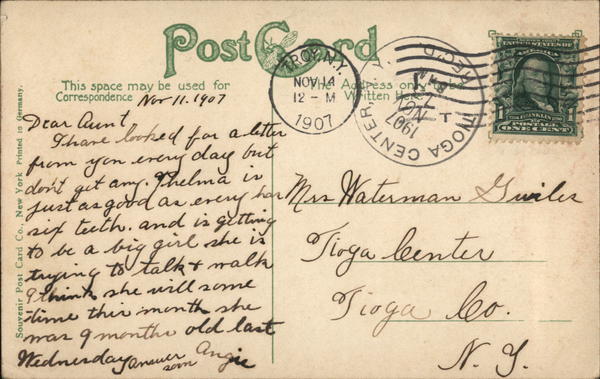 Post Card
This space may be used for
Correspondence
The Address only to be
Written Here
Nov 11. 1907
Dear Aunt
I have looked for a letter
from you every day but
don't get any. Thelma is
just as good as every has
six teeth. and is getting
to be a big girl she is
trying to talk & walk
I think she will some
time this month she
was 9 months old last
Wednesday Answer
soon Angie
Mrs Waterman
Tioga Center
Tioga Co.
N. Y.
TROY, N.Y.
NOV 14
12 - M
1907
TIOGA CENTER, N.Y.
REC'D
NOV
1907
UNITED STATES OF
AMERICA
FRANKLIN
POSTAGE
ONE CENT
Souvenir Post Card Co., New York Printed in Germany.